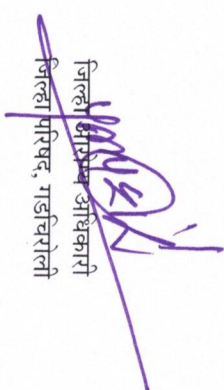 जिल्हा आरोग्य अधिकारी
जिल्हा परिषद, गडचिरोली